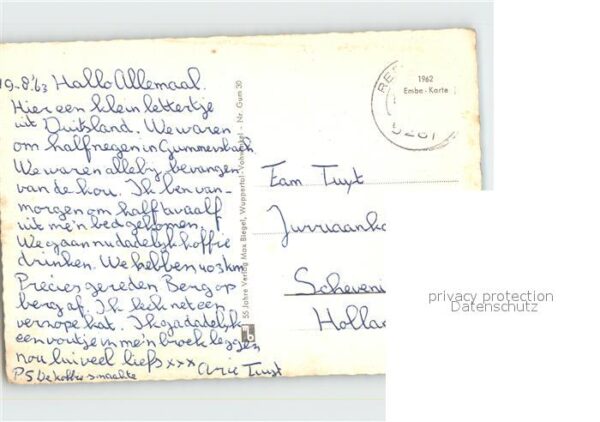 19-8-'63 Hallo Allemaal.
Hier een klein lettertje
uit Duitsland. We waren
om half negen in Gummersbach
We waren alleby bevangen
van de kou. Ik ben van-
morgen om half twaalf
uit me'n bed gekomen.
We gaan nu dadelijk koffie
drinken. We hebben 403 km
Precies gereden Berg op
berg af. Ik leek net een
verhope kat. Ik ga dadelijk
een voutje in me'n broek leggen
nou lui veel liefs xxx Arie Tuyt
PS De koffie smaakte
55 Jahre Verlag Max Biegel, Wuppertal-Vohwinkel - Nr. Gum 30
1962
Embe-Karte
Fam Tuyt
Jurriaank
Scheveni
Holla
privacy protection
Datenschutz